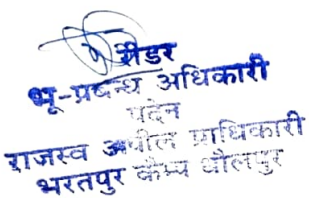 रीडर
भू-प्रबन्ध अधिकारी
पदेन
राजस्व अपील प्राधिकारी
भरतपुर कैम्प धौलपुर